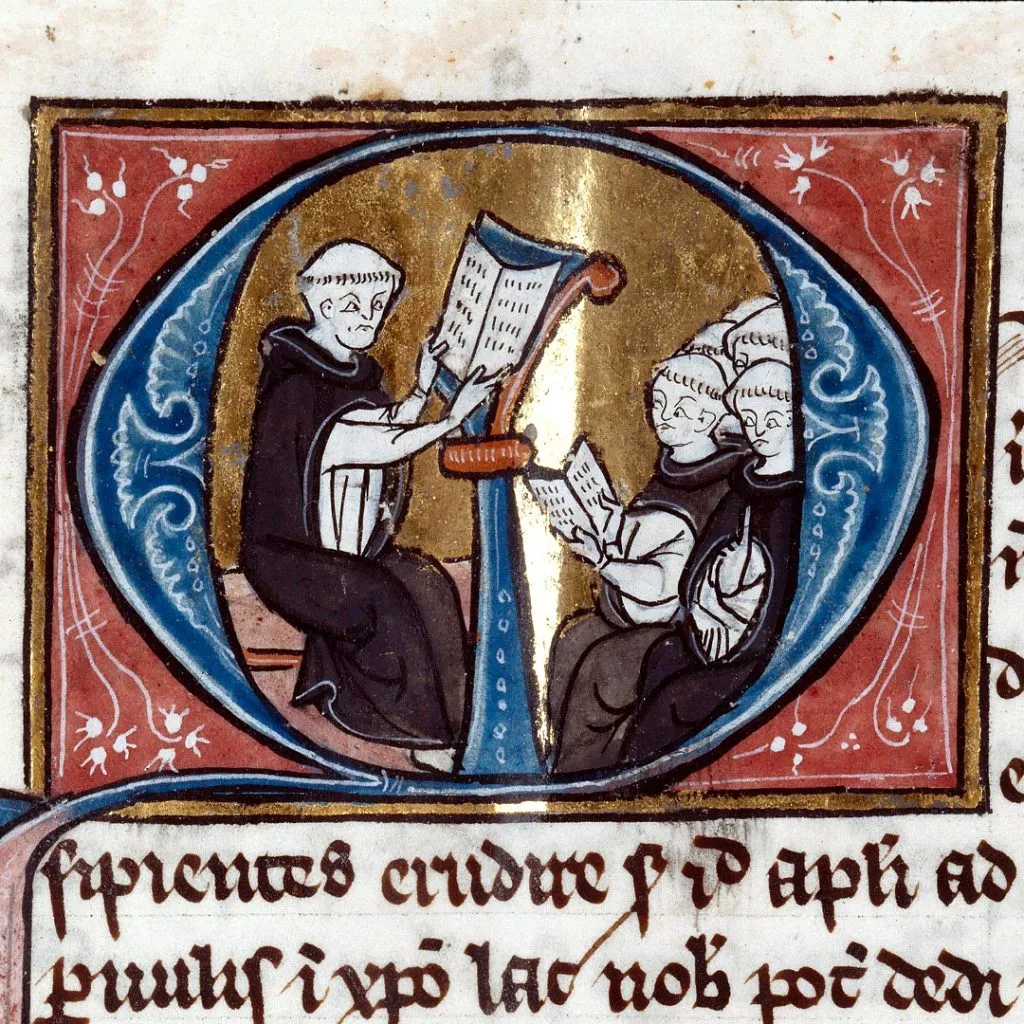 sipientes erudire ẜ id apl̄i ad
ꝑuulis ī xp̄o lac uob̄ pot̄ dedi